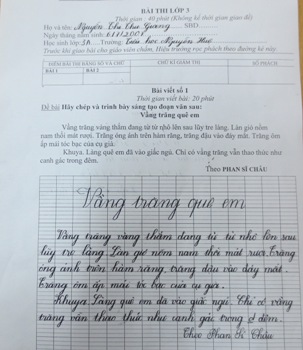 BÀI THI LỚP 3
Thời gian : 40 phút (Không kể thời gian giao đề)
Họ và tên: Nguyễn Thị Thu Giang SBD
Ngày tháng năm sinh:
Học sinh lớp: 3A Trường: Tiểu học Nguyễn Huệ
Trước khi giao bài cho giáo viên chấm, Hiệu trưởng rọc phách theo đường kẻ này.
ĐIỂM BÀI THI BẰNG SỐ VÀ CHỮ
CHỮ KÍ GIÁM THỊ
SỐ PHÁCH
BÀI 1
BÀI 2
Bài viết số 1
Thời gian viết bài: 20 phút
Đề bài Hãy chép và trình bày sáng tạo đoạn văn sau:
Vầng trăng quê em
Vầng trăng vàng thắm đang từ từ nhô lên sau lũy tre làng. Làn gió nồm
nam thổi mát rượi. Trăng óng ánh trên hàm răng, trăng đậu vào đáy mắt. Trăng ôm
ấp mái tóc bạc của cụ già.
Khuya. Làng quê em đã vào giấc ngủ. Chỉ có vầng trăng vẫn thao thức như
canh gác trong đêm.
Theo PHAN SĨ CHÂU
Vầng trăng quê em
Vầng trăng vàng thắm đang từ từ nhô lên sau
lũy tre làng. Làn gió nồm nam thổi mát rượi. Trăng
óng ánh trên hàm răng, trăng đậu vào đáy mắt.
Trăng ôm ấp mái tóc bạc của cụ già.
Khuya. Làng quê em đã vào giấc ngủ. Chỉ có vầng
trăng vẫn thao thức như canh gác trong đêm.
Theo Phan Sĩ Châu